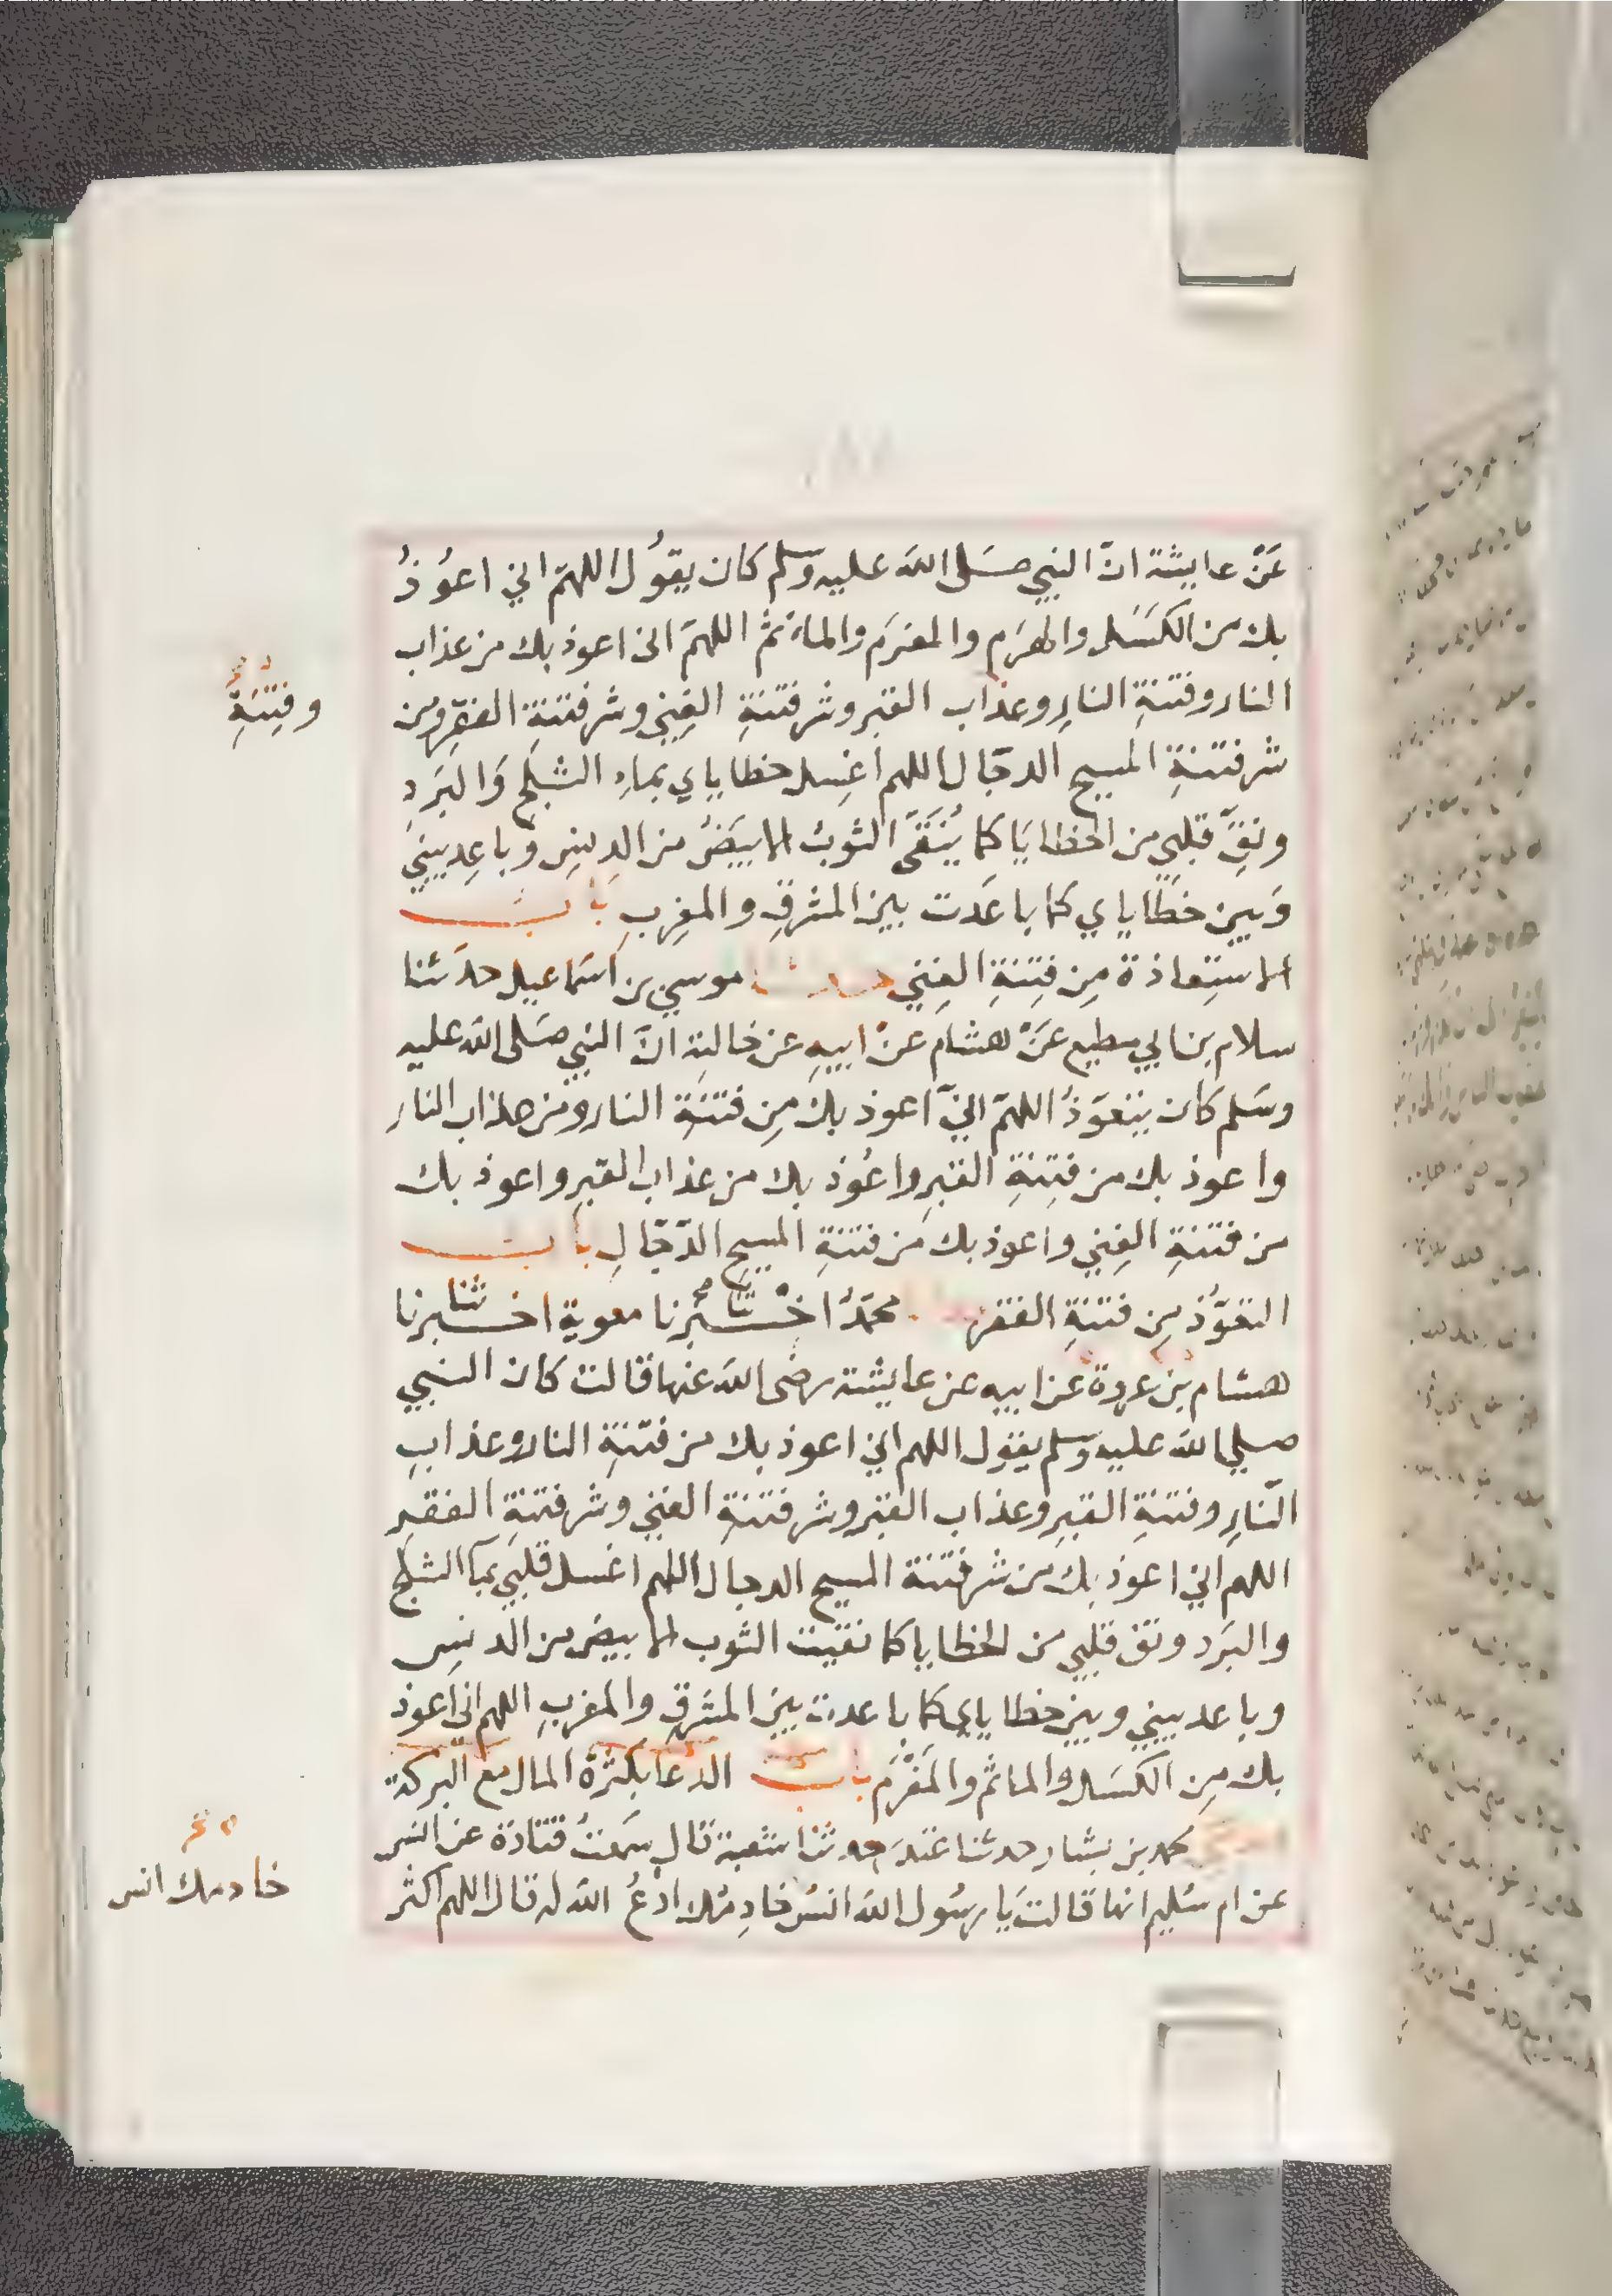 عَنْ عايشة انّ النبي صَلى اللّه عليه وسلم كان يقوُل اللهمّ اني اعوُذُ
بك من الكسَل والهرَم والمغرَم والماثم اللهمّ انى اعوذ بك من عذاب
النار وفتنةِ النارِ وعذاب القبر وشر فتنةِ الغِني وشر فتنةِ الفقرِ ومن
شر فتنةِ المسيح الدجّال اللهم اغِسل خطاياي بماءِ الثلج وَالبَرَدِ
ونقِّ قلبي من الخطايَا كما يُنَقَّى الثوبُ الابيَضُ من الدنسِ وباعِد بيني
وَبين خطَاياي كما باعَدت بين المشرقِ والمغربِ بَاب
الاستِعاذة مِن فِتنةِ الغِني حدثنا موسي بن اسَماعيل حدثنا
سلام بن ابي مطيع عَنْ هشام عنْ ابيهِ عن خالتِه انَّ النبي صَلى اللّه عليه
وسَلم كان يتعوّذُ اللهمّ اني اعوذ بك مِن فتنَةِ النار ومن عذاب النار
واعوذ بك من فتِنةِ القبرِ واعُوذ بك من عذاب القبرِ واعوذ بك
من فتنةِ الغِني واعوذ بك من فتنةِ المسيح الدّجّالِ باب
التعوّذ مِن فتنةِ الفقر محمّدُ اخْبرنا ثنا معوية اخبرنا ثنا
هشام بن عروة عن ابيه عن عايشة رضى اللّه عنها قالت كان النبي
صلي اللّه عليه وسلم يقول اللهم اني اعوذ بك من فتنةِ النار وعذابِ
النّارِ وفتنةِ القبرِ وعذاب القبر وشر فتنةِ الغني وشر فتنةِ الفقرِ
اللهم اني اعوذ بك من شر فتنة المسيح الدجال اللهم اغسل قلبي بمآ الثلج
والبرَد ونق قلبي من الخطايا كما نقيت الثوب الابيض من الدنسِ
وباعد بيني وبين خطاياي كما باعدت بين المشرقِ والمغربِ اللهم انى اعوذ
بك مِن الكسَل والماثم والمَغْرَم باب الدعا بكثرة المال مع البركة
محمد بن بشار حدثنا غندَر حدثنا شعبة قال سمعتُ قتادة عن انس
عن ام سُليم انها قالت يا رسُول اللّه انسُ خادِمُك ادْعُ اللّه له قال اللهم اكثر
وفِتنَةِ
خادمك انس